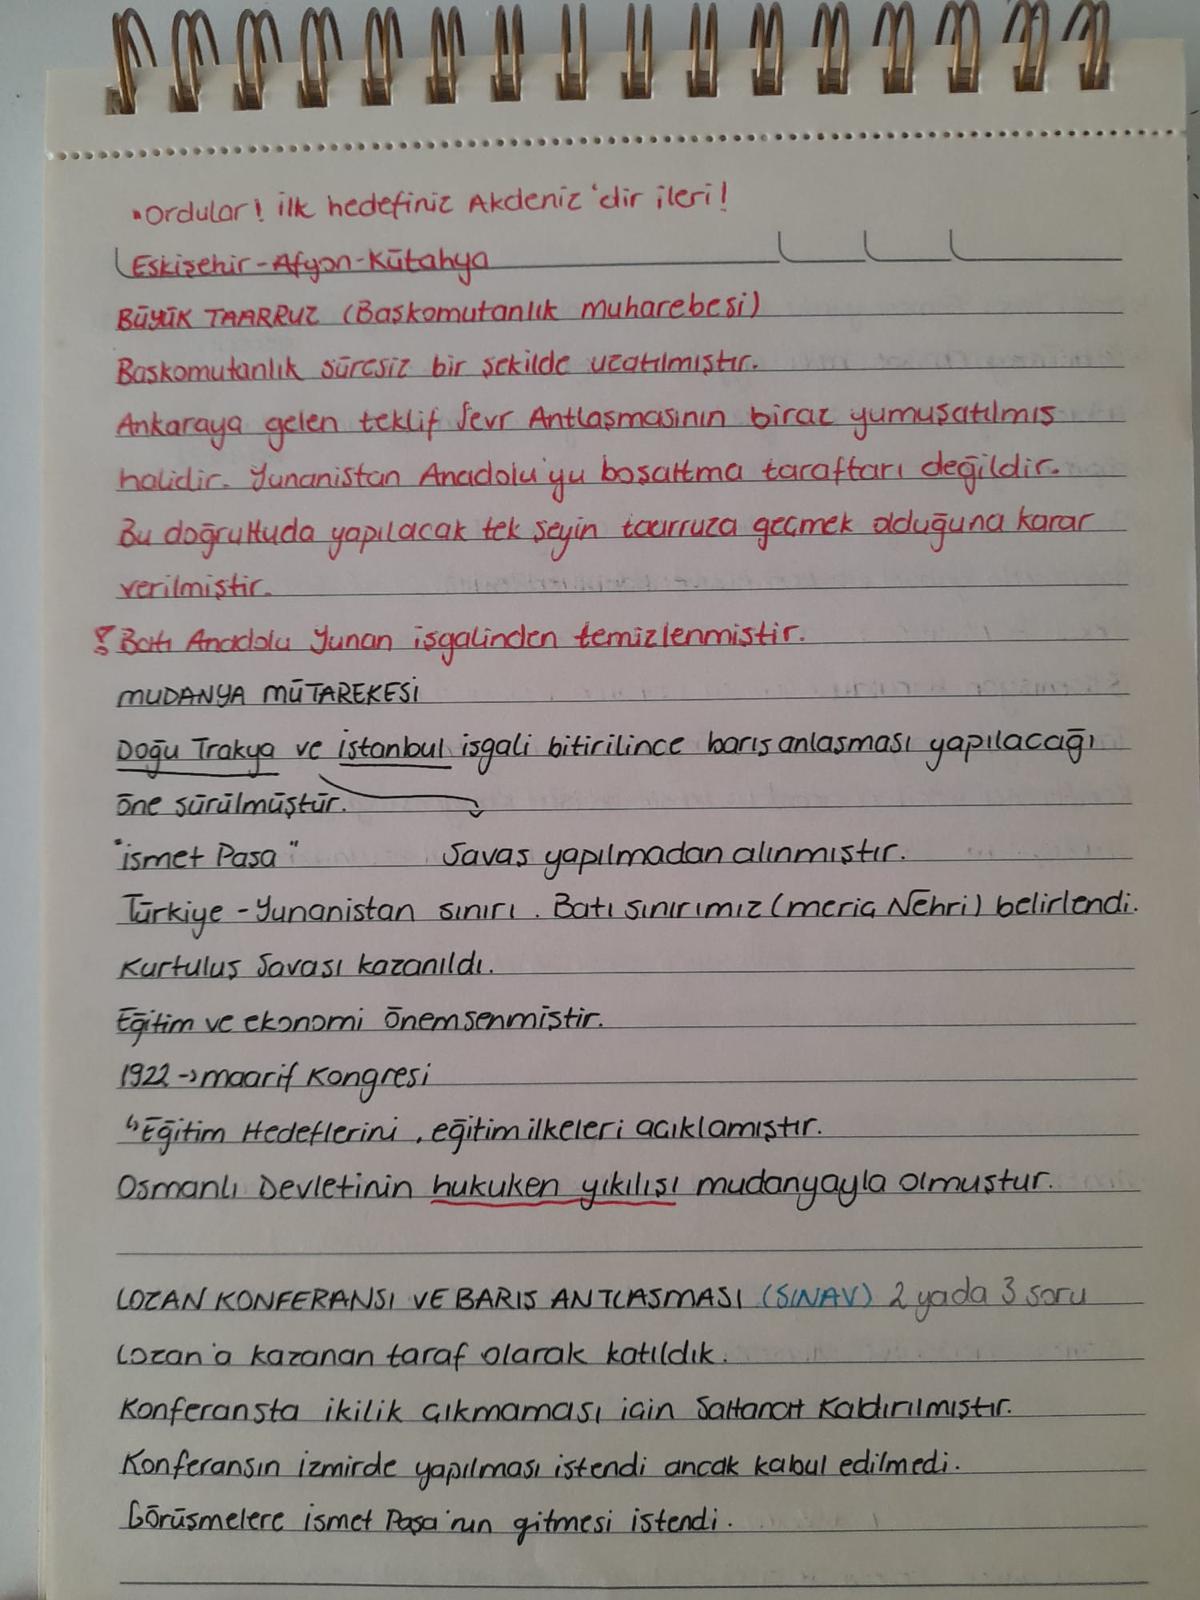 •Ordular! ilk hedefiniz Akdeniz'dir ileri!
Eskişehir-Afyon-Kütahya
BÜYÜK TAARRUZ (Başkomutanlık muharebesi)
Başkomutanlık süresiz bir şekilde uzatılmıştır.
Ankaraya gelen teklif Sevr Antlaşmasının biraz yumuşatılmış
halidir. Yunanistan Anadolu'yu boşaltma taraftarı değildir.
Bu doğrultuda yapılacak tek şeyin taarruza geçmek olduğuna karar
verilmiştir.
! Batı Anadolu Yunan işgalinden temizlenmiştir.
MUDANYA MÜTAREKESİ
Doğu Trakya ve istanbul işgali bitirilince barış anlaşması yapılacağı
öne sürülmüştür.
"ismet Paşa" Savaş yapılmadan alınmıştır.
Türkiye-Yunanistan sınırı. Batı sınırımız (meriç Nehri) belirlendi.
Kurtuluş Savaşı kazanıldı.
Eğitim ve ekonomi önemsenmiştir.
1922 → maarif Kongresi
↳ Eğitim Hedeflerini, eğitim ilkeleri açıklamıştır.
Osmanlı Devletinin hukuken yıkılışı mudanyayla olmuştur.
LOZAN KONFERANSI VE BARIŞ ANTLAŞMASI (SINAV) 2 yada 3 soru
Lozan'a kazanan taraf olarak katıldık.
Konferansta ikilik çıkmaması için Saltanat Kaldırılmıştır.
Konferansın izmirde yapılması istendi ancak kabul edilmedi.
Görüşmelere ismet Paşa'nın gitmesi istendi.